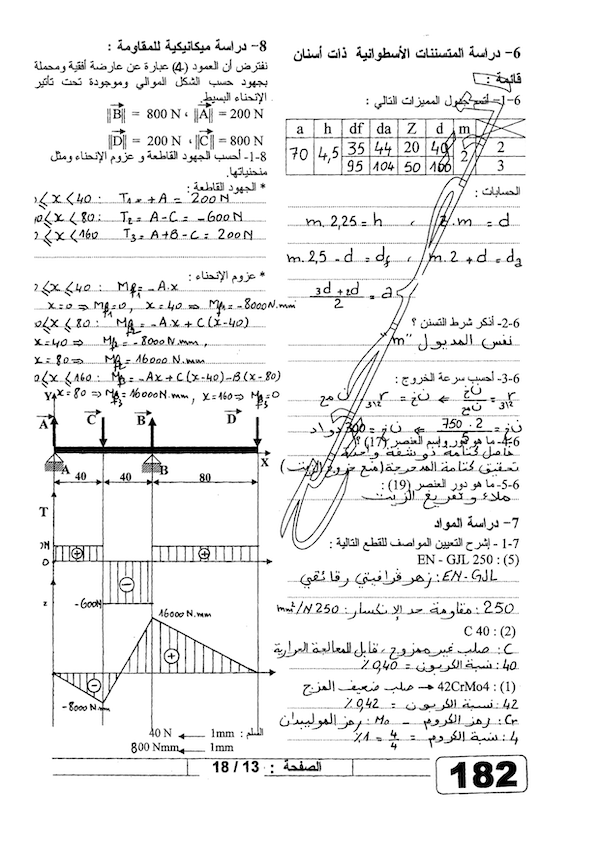 6- دراسة المتسننات الأسطوانية ذات أسنان
قائمة :
المميزات التالي :
a h df da Z d m
70 4,5 35 44 20 40 2 2
95 104 50 100 3
الحسابات :
m. 2,25 = h ، Z.m = d
m. 2,5 - d = df ، m. 2 + d = da
a =
2-6- أذكر شرط التسنن ؟
نفس المديول "m"
3-6- أحسب سرعة الخروج :
750 . 2
4-6- ما هو دور وإسم العنصر (17) ؟
حاصل كتامة ذو شفة واحدة
تحقيق كتامة المدحرجة (منع خروج الزيت)
5-6- ما هو دور العنصر (19) :
ملاء و تفريغ الزيت
7- دراسة المواد
1-7 - إشرح التعيين المواصف للقطع التالية :
EN - GJL 250 : (5)
EN-GJL : زهر قرافيتي رقائقي
250 : مقاومة حد الإنكسار : 250 N/mm²
C 40 : (2)
C : صلب غير ممزوج ، قابل للمعالجة الحرارية
40 : نسبة الكربون = 0,40 %
42CrMo4 : (1) → صلب ضعيف المزج
42 : نسبة الكربون = 0,42 %
Cr : رمز الكروم - Mo : رمز الموليبدان
4 : نسبة الكروم = 4/4 = 1 %
8- دراسة ميكانيكية للمقاومة :
نفترض أن العمود (4) عبارة عن عارضة أفقية ومحملة
بجهود حسب الشكل الموالي وموجودة تحت تأثير
الإنحناء البسيط.
||B|| = 800 N ، ||A|| = 200 N
||D|| = 200 N ، ||C|| = 800 N
1-8- أحسب الجهود القاطعة و عزوم الإنحناء ومثل
منحنياتها.
* الجهود القاطعة :
≤ x ≤ 40 : T1 = +A = 200 N
≤ x ≤ 80 : T2 = A-C = -600N
≤ x ≤ 160 T3 = A+B-C = 200N
* عزوم الإنحناء :
≤ x ≤ 40 : Mf1 = -A.x
x=0 ⇒ Mf1=0 , x=40 ⇒ Mf1=-8000N.mm
≤ x ≤ 80 : Mf2 = -A.x + C(x-40)
x=40 ⇒ Mf2 = -8000N.mm ,
x=80 ⇒ Mf2 = 16000 N.mm
≤ x ≤ 160 : Mf3 = -Ax + C(x-40) - B(x-80)
x=80 ⇒ Mf3=16000N.mm , x=160 ⇒ Mf3=0
Y
A C B D
A B X
40 40 80
T
0
+ - +
-600N
16000 N.mm
- +
-8000 N.mm
السلم : 1mm → 40 N
1mm → 800 Nmm
الصفحة : 13 / 18
182